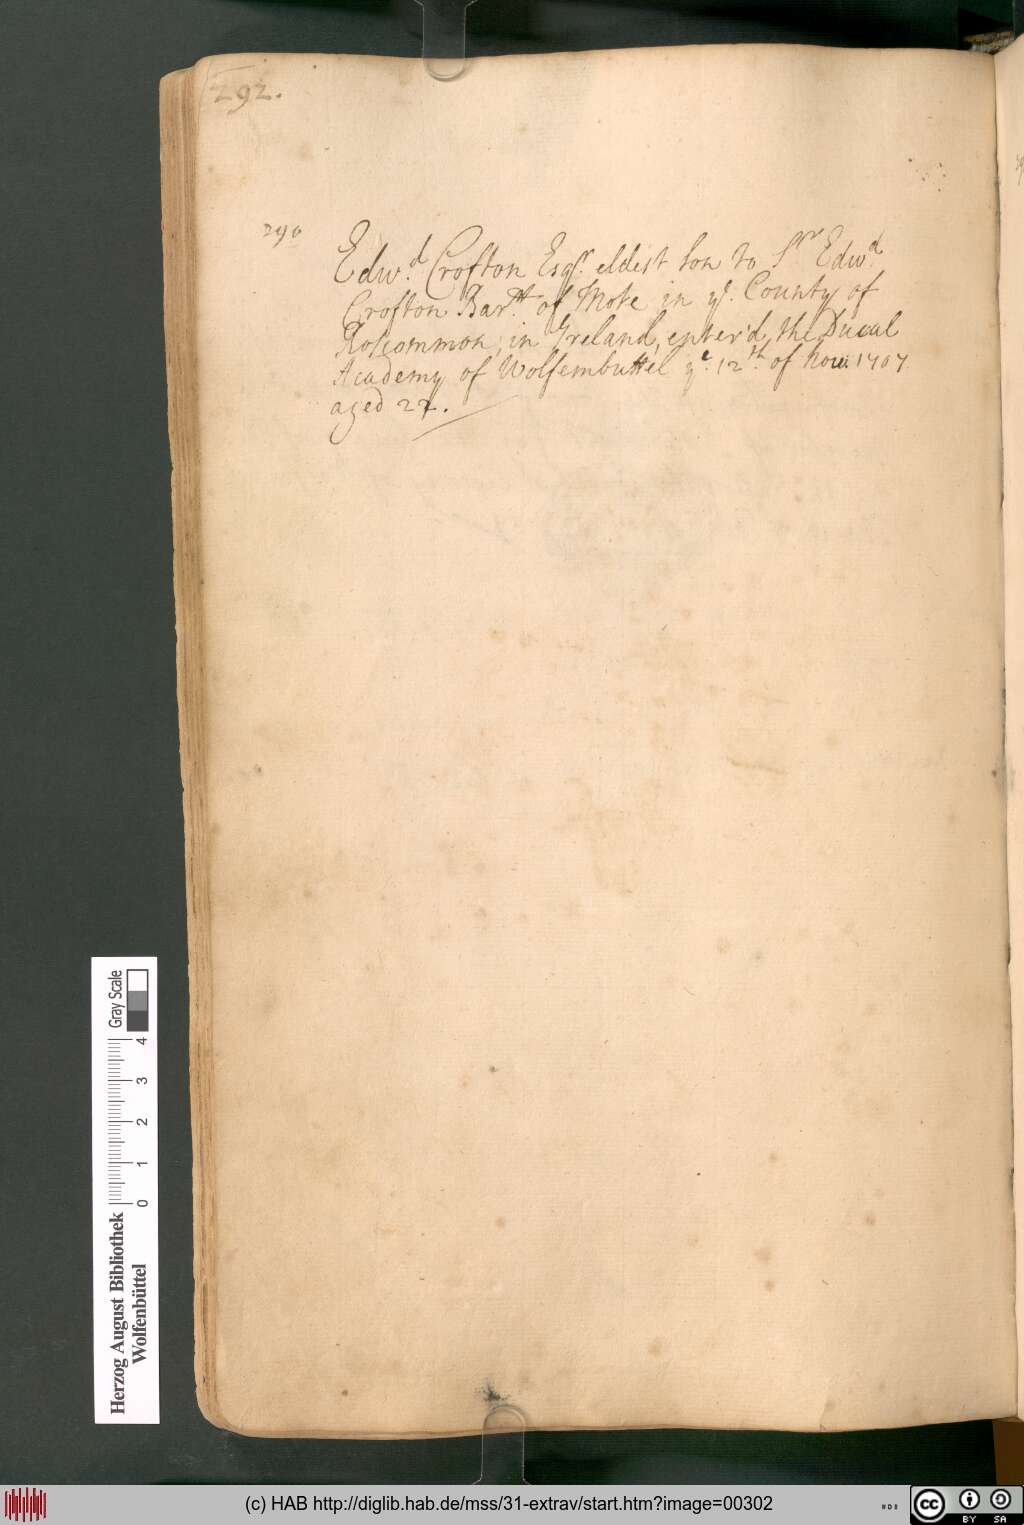 292.
290
Edw.d Crofton Esqr. eldest son to Sr Edw.d
Crofton Bar.tt of Mote in ye. County of
Roscommon, in Ireland, enter'd the Ducal
Academy of Wolfembuttel ye. 12th of Nov: 1707.
aged 22.
Herzog August Bibliothek
Wolfenbüttel
0 1 2 3 4
Gray Scale
(c) HAB http://diglib.hab.de/mss/31-extrav/start.htm?image=00302
cc
BY SA